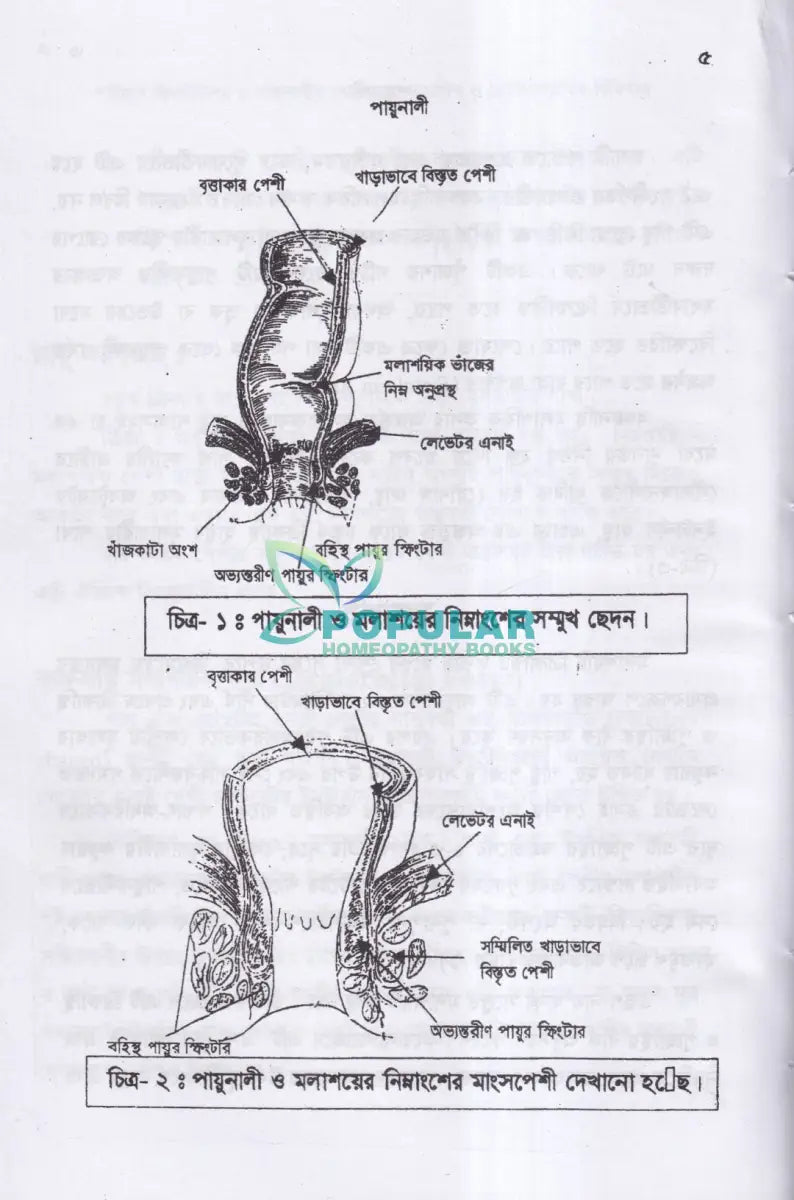 ৫
পায়ুনালী
বৃত্তাকার পেশী
খাড়াভাবে বিস্তৃত পেশী
মলাশয়িক ভাঁজের
নিম্ন অনুপ্রস্থ
লেভেটর এনাই
খাঁজকাটা অংশ
বহিস্থ পায়ুর স্ফিংটার
অভ্যন্তরীণ পায়ুর স্ফিংটার
চিত্র- ১ ঃ পায়ুনালী ও মলাশয়ের নিম্নাংশের সম্মুখ ছেদন।
POPULAR
HOMEOPATHY BOOKS
বৃত্তাকার পেশী
খাড়াভাবে বিস্তৃত পেশী
লেভেটর এনাই
সম্মিলিত খাড়াভাবে
বিস্তৃত পেশী
অভ্যন্তরীণ পায়ুর স্ফিংটার
বহিস্থ পায়ুর স্ফিংটার
চিত্র- ২ ঃ পায়ুনালী ও মলাশয়ের নিম্নাংশের মাংসপেশী দেখানো হয়েছে।